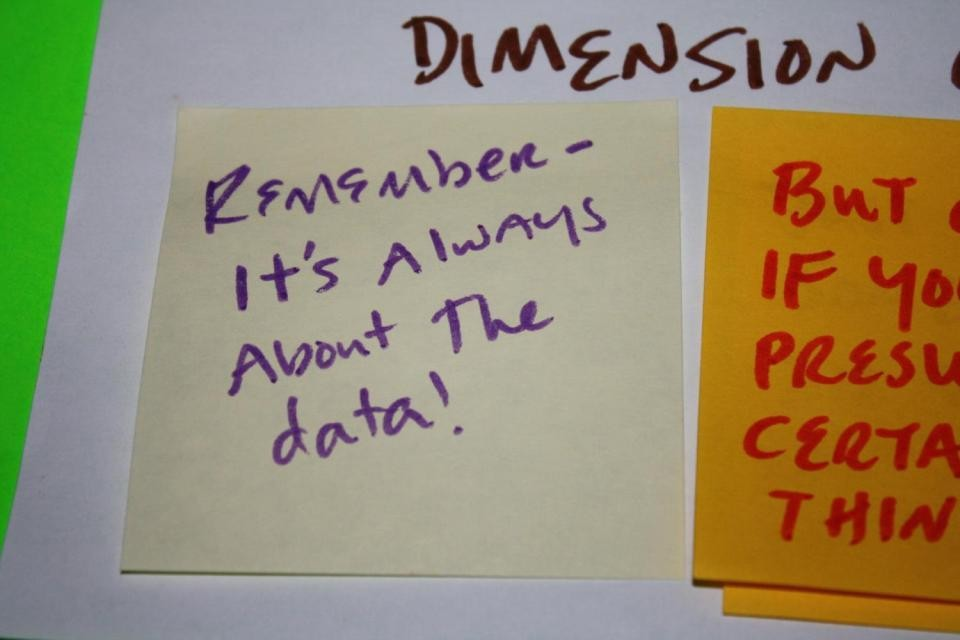 DIMENSION
Remember -
It's Always
About The
data!
But
IF YOU
PRESU
CERTA
THIN